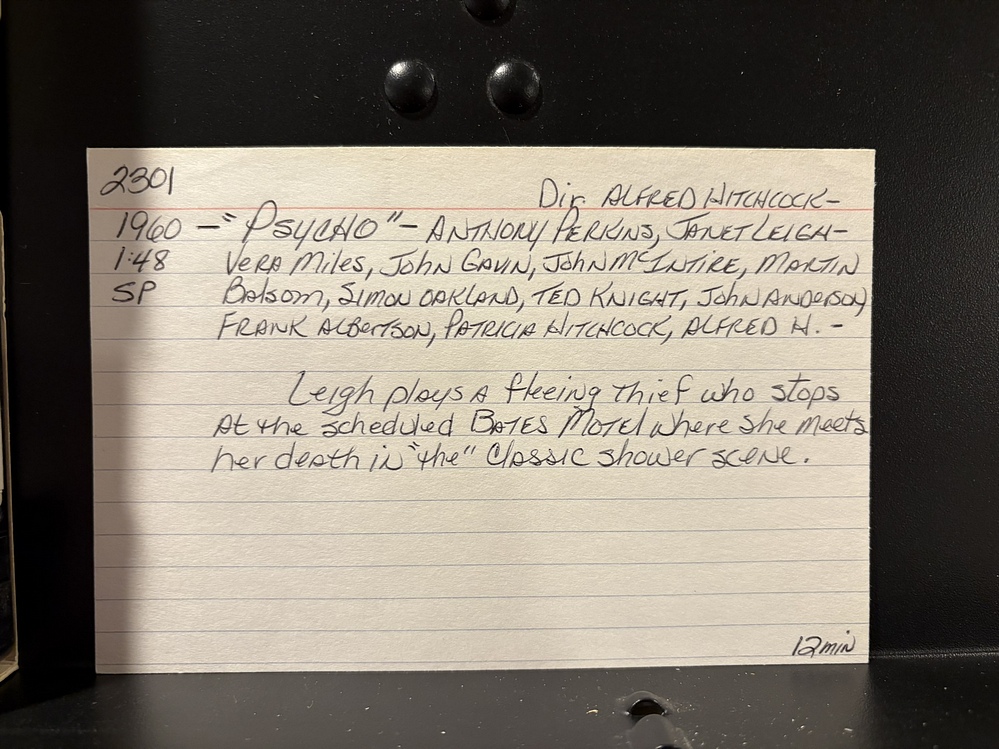 2301
Dir. ALFRED HITCHCOCK-
1960 - "PSYCHO" - ANTHONY PERKINS, JANET LEIGH-
1:48 VERA Miles, JOHN GAVIN, JOHN McINTIRE, MARTIN
SP Balsom, SIMON OAKLAND, TED KNIGHT, JOHN ANDERSON,
FRANK ALBERTSON, PATRICIA HITCHCOCK, ALFRED H. -
Leigh plays A fleeing thief who stops
At the scheduled BATES MOTEl where she meets
her death in "the" Classic shower scene.
12 min